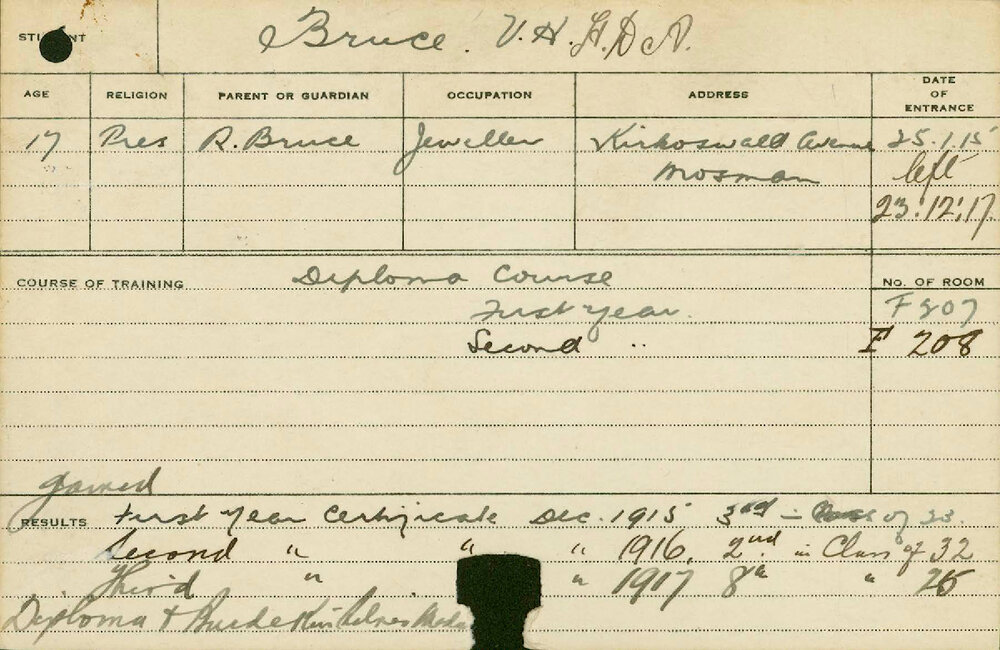 STUDENT Bruce. V. H. H. D. N.
AGE RELIGION PARENT OR GUARDIAN OCCUPATION ADDRESS DATE OF ENTRANCE
17 Pres R. Bruce Jeweller Kirkoswald Avenue 25.1.15
Mosman left
23.12.17
COURSE OF TRAINING Diploma Course No. OF ROOM
First Year. F 207
Second " F 208
gained
RESULTS First Year Certificate Dec. 1915 3rd in Class of 33.
Second " " " 1916, 2nd. in Class of 32
Third " " 1917 8th " 25
Diploma &